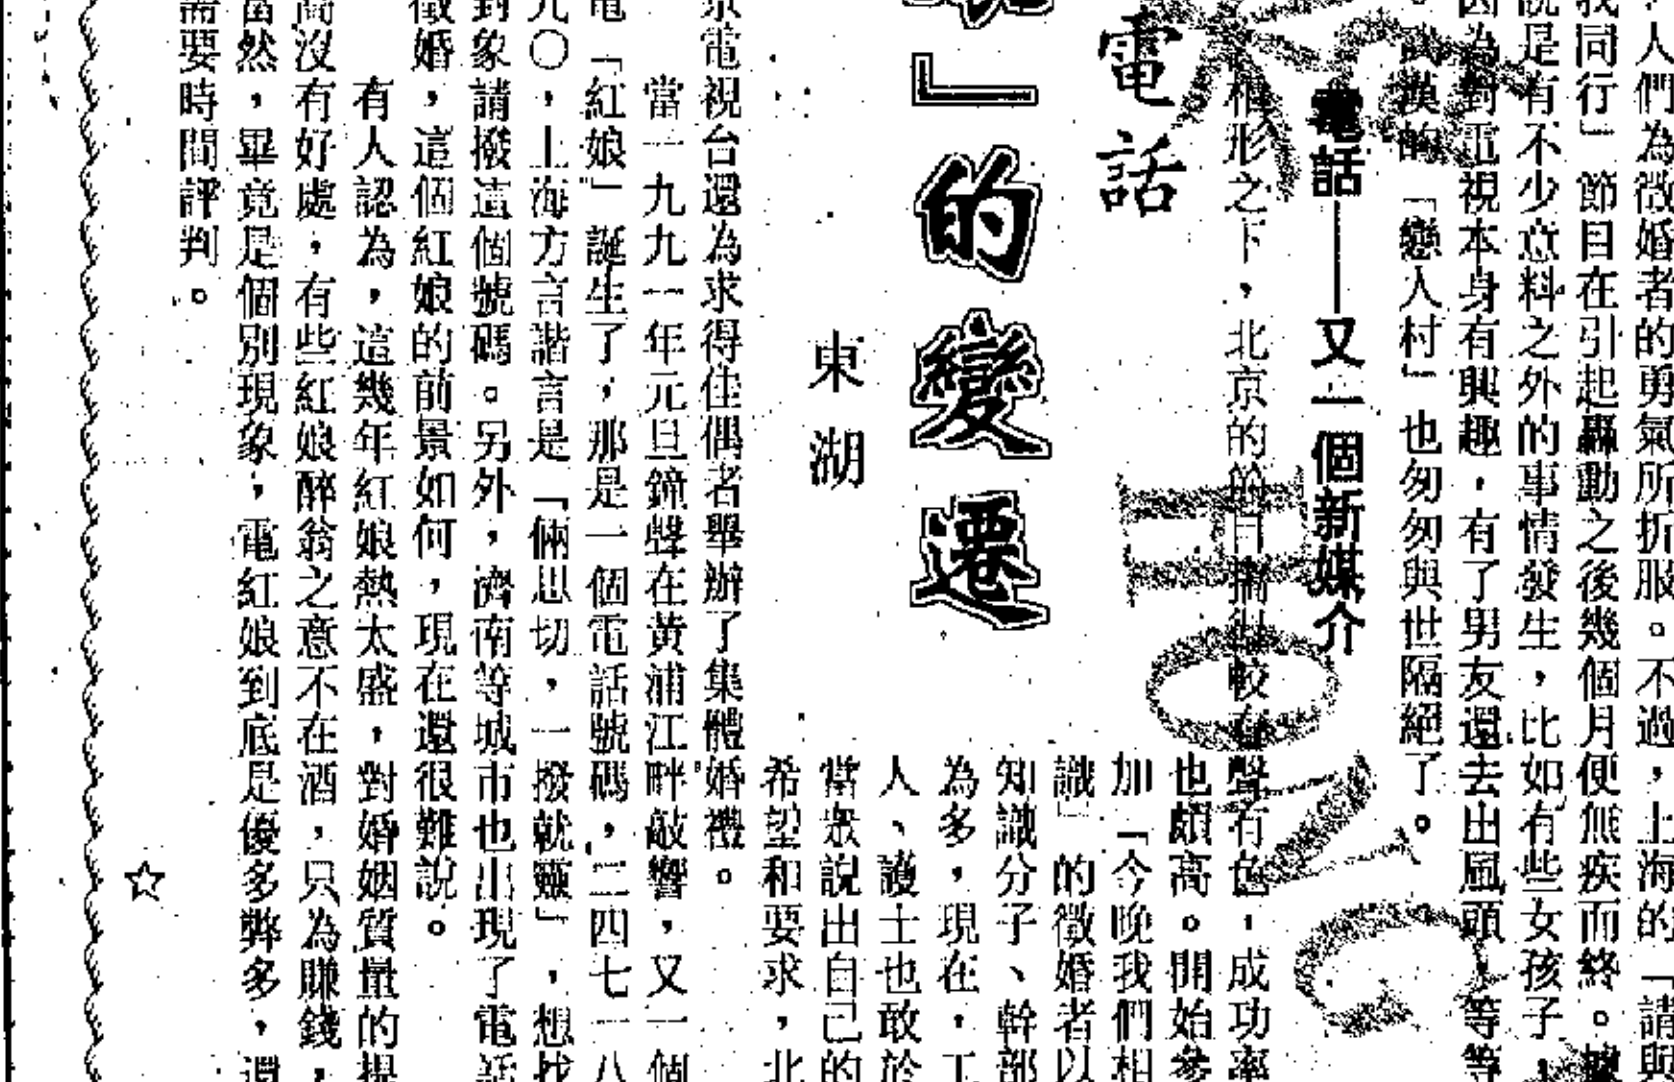 ，人們為徵婚者的勇氣所折服。不過，上海的「請與
我同行」節目在引起轟動之後幾個月便無疾而終。據
說是有不少意料之外的事情發生，比如有些女孩子，
因為對電視本身有興趣，有了男友還去出風頭，等等
。武漢的「戀人村」也匆匆與世隔絕了。
電話——又一個新媒介
相形之下，北京的節目搞得比較有聲有色，成功率
也頗高。開始參
加「今晚我們相
識」的徵婚者以
知識分子、幹部
為多，現在，工
人、護士也敢於
當眾說出自己的
希望和要求，北
電話
』的變遷
東湖
京電視台還為求得佳偶者舉辦了集體婚禮。
當一九九一年元旦鐘聲在黃浦江畔敲響，又一個
電「紅娘」誕生了，那是一個電話號碼，二四七一八
九〇，上海方言諧言是「倆思切，一撥就靈」，想找
對象請撥這個號碼。另外，濟南等城市也出現了電話
徵婚，這個紅娘的前景如何，現在還很難說。
有人認為，這幾年紅娘熱太盛，對婚姻質量的提
高沒有好處，有些紅娘醉翁之意不在酒，只為賺錢，
當然，畢竟是個別現象，電紅娘到底是優多弊多，還
需要時間評判。
☆